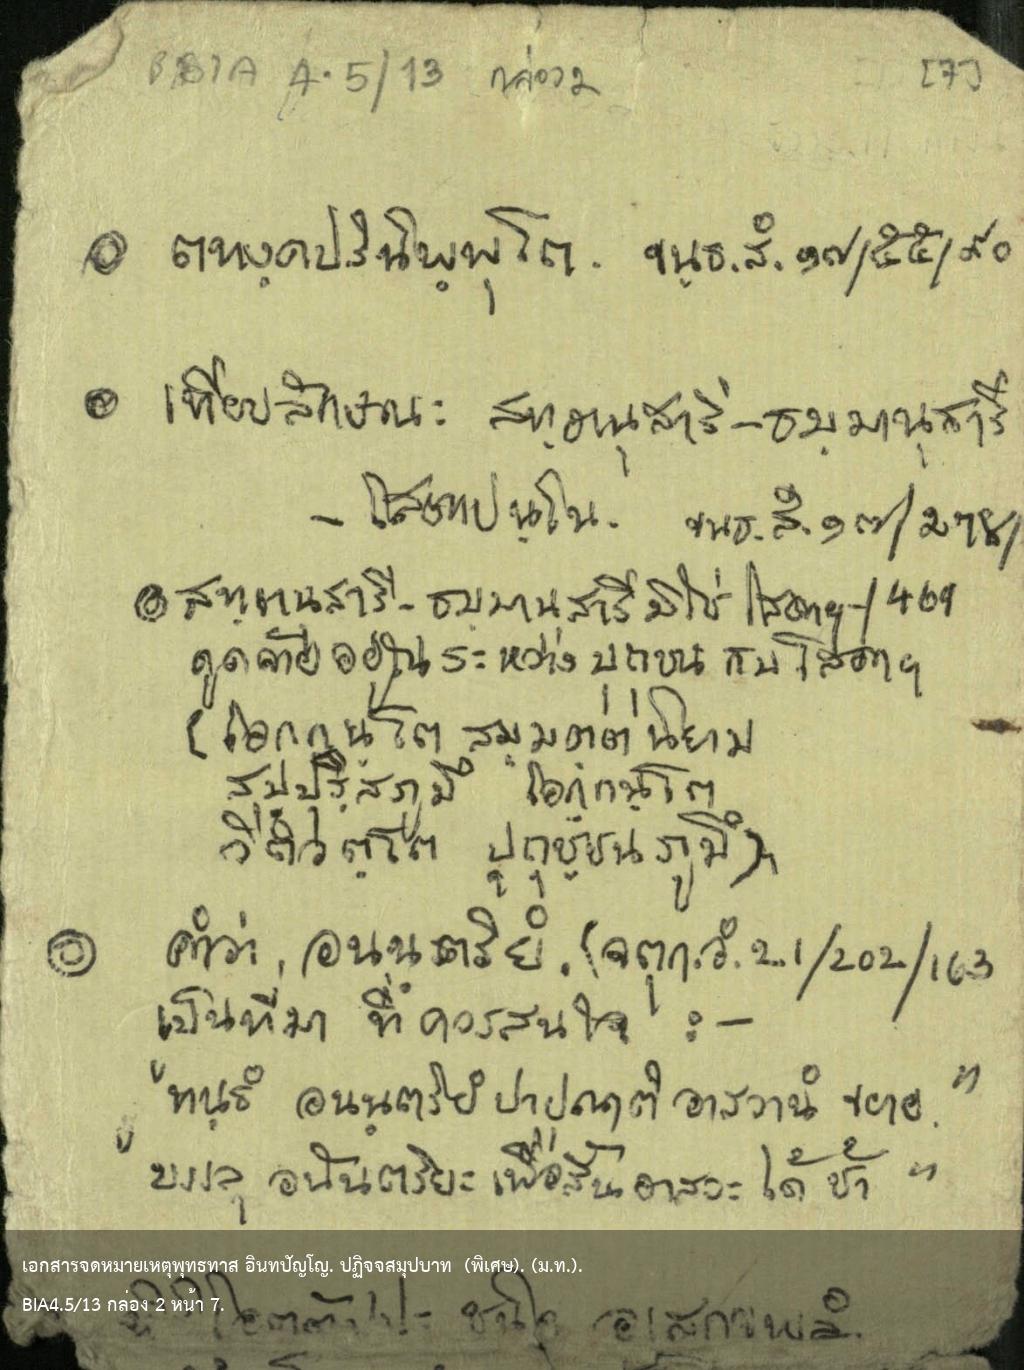 BIA A.5/13 กล่อง 2 [7]
ตทงฺคปรินิพฺพุโต. ขนฺธ.สํ. ๑๗/๕๕/๙๐
เทียบลักษณะ สทฺธานุสารี-ธมฺมานุสารี
- โสตาปนฺโน. ขนธ.สํ.๑๗/๒๗๘/
สทฺธานุสารี-ธมฺมานุสารี มิใช่ โสดาฯ /469
ดูคล้ายอยู่ในระหว่าง บุถุชน กับ โสดาฯ
(โอกฺกนฺโต สมฺมตฺตนิยาม
สปฺปุริสภูมึ โอกฺกนฺโต
วีติวตฺโต ปุถุชฺชนภูมึ)ฯ
คำว่า, อนนฺตริยํ. (จตุกฺ.อํ.21/202/163
เป็นที่มา ที่ควรสนใจ :-
"ทนฺธํ อนนฺตริยํ ปาปุณาติ อาสวานํ ขยาย."
"บรรลุ อนันตริยะ เพื่อสิ้นอาสวะ ได้ช้า"
เอกสารจดหมายเหตุพุทธทาส อินทปัญโญ. ปฏิจจสมุปบาท (พิเศษ). (ม.ท.).
BIA4.5/13 กล่อง 2 หน้า 7.